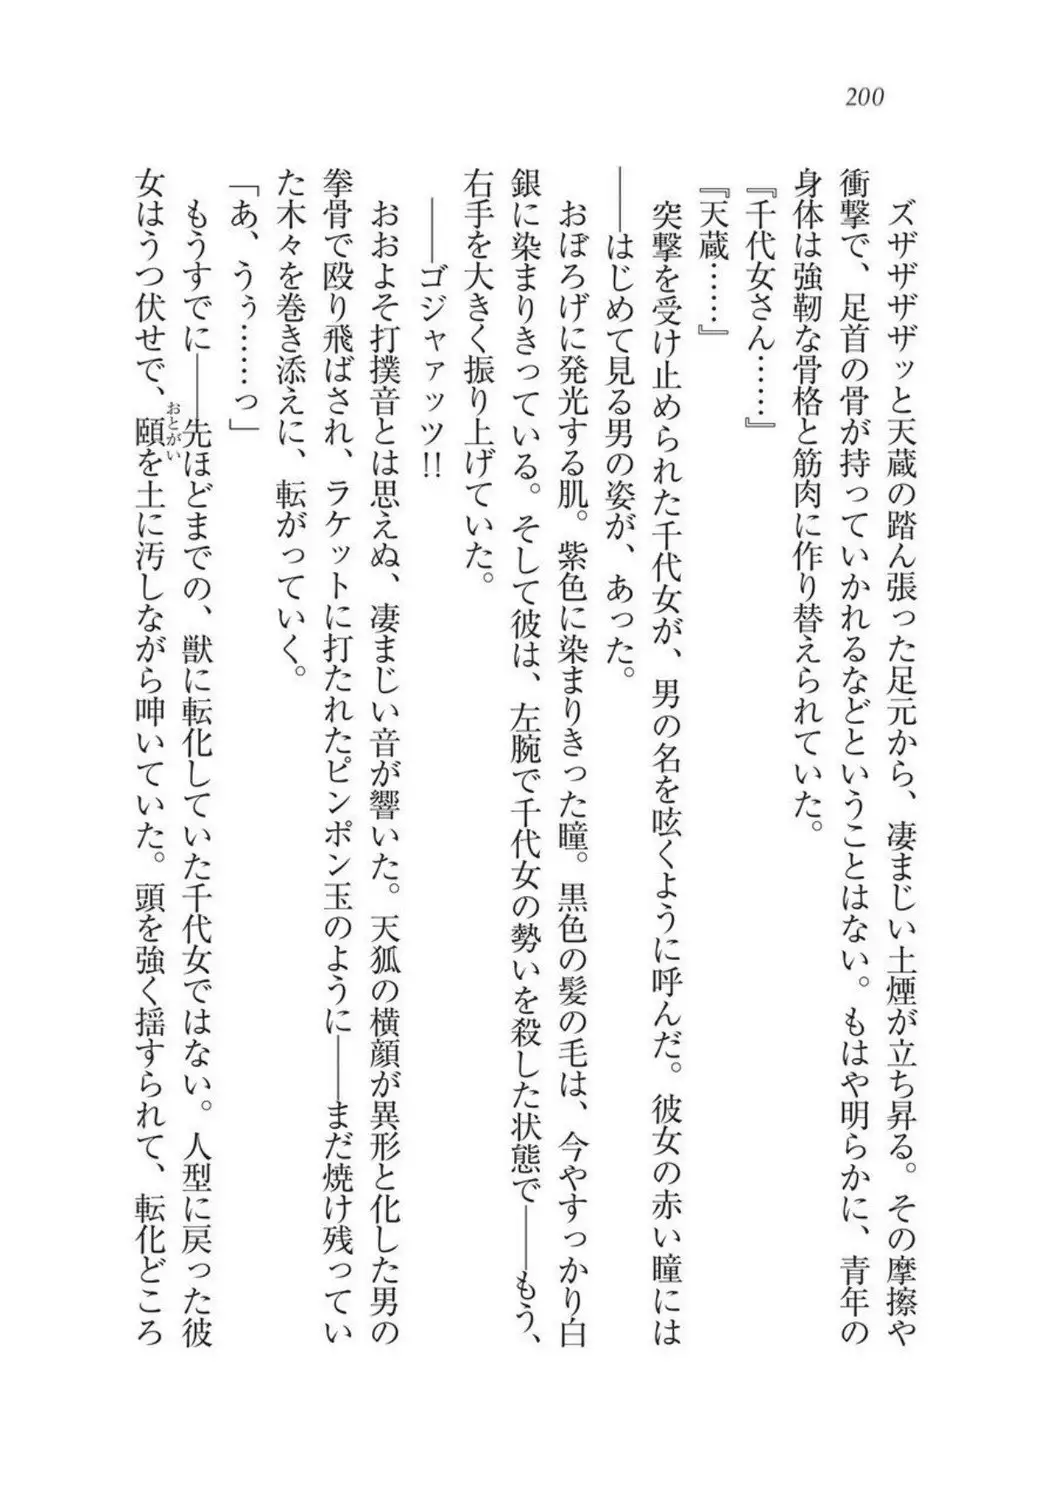 200
ズザザザザッと天蔵の踏ん張った足元から、凄まじい土煙が立ち昇る。その摩擦や
衝撃で、足首の骨が持っていかれるなどということはない。もはや明らかに、青年の
身体は強靭な骨格と筋肉に作り替えられていた。
『千代女さん……』
『天蔵……』
突撃を受け止められた千代女が、男の名を呟くように呼んだ。彼女の赤い瞳には
――はじめて見る男の姿が、あった。
おぼろげに発光する肌。紫色に染まりきった瞳。黒色の髪の毛は、今やすっかり白
銀に染まりきっている。そして彼は、左腕で千代女の勢いを殺した状態で――もう、
右手を大きく振り上げていた。
――ゴジャァッッ!!
おおよそ打撲音とは思えぬ、凄まじい音が響いた。天狐の横顔が異形と化した男の
拳骨で殴り飛ばされ、ラケットに打たれたピンポン玉のように――まだ焼け残ってい
た木々を巻き添えに、転がっていく。
「あ、うぅ……っ」
もうすでに――先ほどまでの、獣に転化していた千代女ではない。人型に戻った彼
女はうつ伏せで、頤おとがいを土に汚しながら呻いていた。頭を強く揺すられて、転化どころ